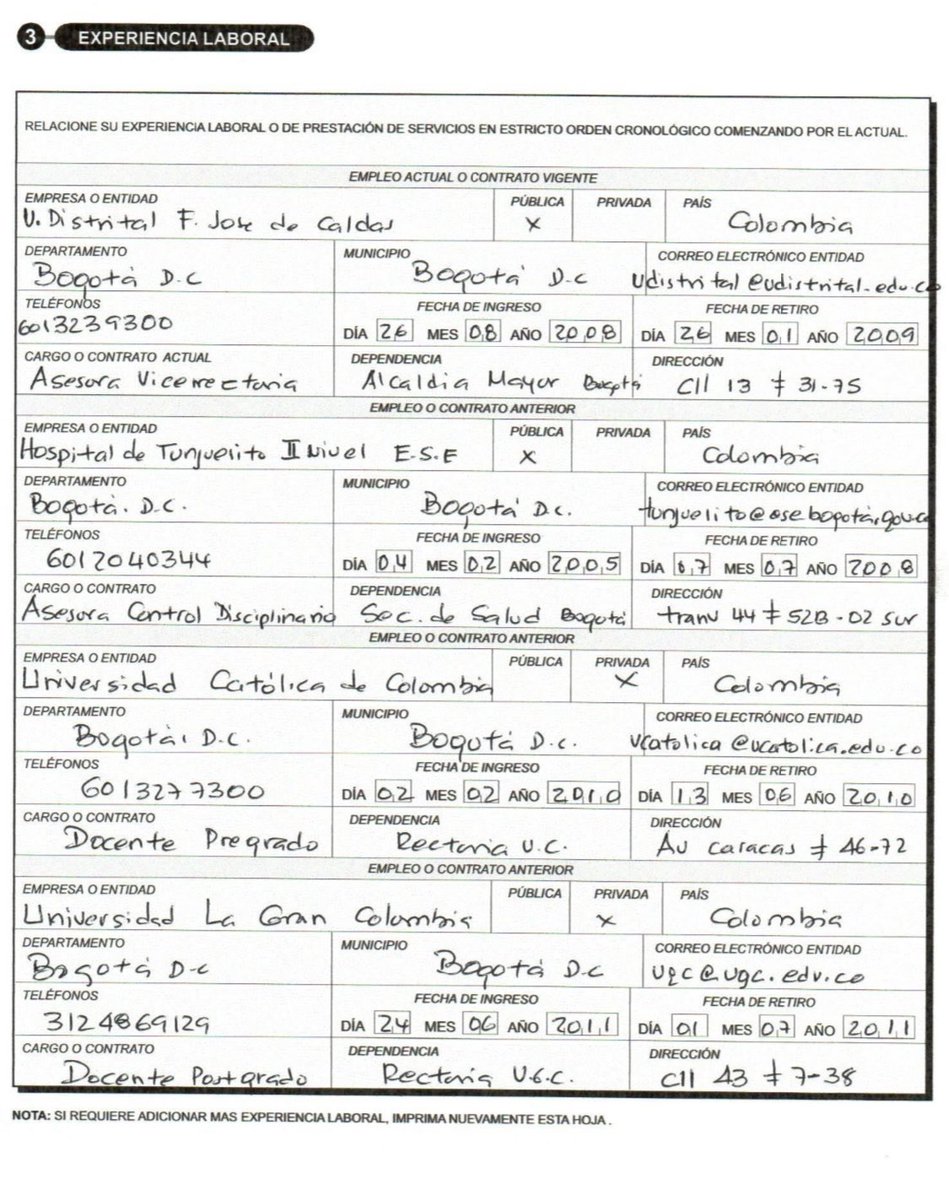 3 EXPERIENCIA LABORAL
RELACIONE SU EXPERIENCIA LABORAL O DE PRESTACIÓN DE SERVICIOS EN ESTRICTO ORDEN CRONOLÓGICO COMENZANDO POR EL ACTUAL.
EMPLEO ACTUAL O CONTRATO VIGENTE
EMPRESA O ENTIDAD PÚBLICA PRIVADA PAÍS
U. Distrital F. Jose de Caldas X Colombia
DEPARTAMENTO MUNICIPIO CORREO ELECTRÓNICO ENTIDAD
Bogotá D.C Bogotá D.C udistrital@udistrital.edu.co
TELÉFONOS FECHA DE INGRESO FECHA DE RETIRO
6013239300 DÍA 26 MES 08 AÑO 2008 DÍA 26 MES 01 AÑO 2009
CARGO O CONTRATO ACTUAL DEPENDENCIA DIRECCIÓN
Asesora Vicerrectoria Alcaldia Mayor Bogotá Cll 13 # 31-75
EMPLEO O CONTRATO ANTERIOR
EMPRESA O ENTIDAD PÚBLICA PRIVADA PAÍS
Hospital de Tunjuelito II Nivel E.S.E X Colombia
DEPARTAMENTO MUNICIPIO CORREO ELECTRÓNICO ENTIDAD
Bogotá. D.C. Bogotá D.C. tunjuelito@esebogotá.gov.co
TELÉFONOS FECHA DE INGRESO FECHA DE RETIRO
6012040344 DÍA 04 MES 02 AÑO 2005 DÍA 07 MES 07 AÑO 2008
CARGO O CONTRATO DEPENDENCIA DIRECCIÓN
Asesora Control Disciplinario Sec. de Salud Bogotá tranv 44 # 52B-02 sur
EMPLEO O CONTRATO ANTERIOR
EMPRESA O ENTIDAD PÚBLICA PRIVADA PAÍS
Universidad Católica de Colombia X Colombia
DEPARTAMENTO MUNICIPIO CORREO ELECTRÓNICO ENTIDAD
Bogotá. D.C. Bogotá D.C. ucatolica@ucatolica.edu.co
TELÉFONOS FECHA DE INGRESO FECHA DE RETIRO
6013277300 DÍA 02 MES 02 AÑO 2010 DÍA 13 MES 06 AÑO 2010
CARGO O CONTRATO DEPENDENCIA DIRECCIÓN
Docente Pregrado Rectoria U.C. Av caracas # 46-72
EMPLEO O CONTRATO ANTERIOR
EMPRESA O ENTIDAD PÚBLICA PRIVADA PAÍS
Universidad La Gran Colombia X Colombia
DEPARTAMENTO MUNICIPIO CORREO ELECTRÓNICO ENTIDAD
Bogotá D.C Bogotá D.C ugc@ugc.edu.co
TELÉFONOS FECHA DE INGRESO FECHA DE RETIRO
3124869129 DÍA 24 MES 06 AÑO 2011 DÍA 01 MES 07 AÑO 2011
CARGO O CONTRATO DEPENDENCIA DIRECCIÓN
Docente Postgrado Rectoria U.G.C. Cll 43 # 7-38
NOTA: SI REQUIERE ADICIONAR MAS EXPERIENCIA LABORAL, IMPRIMA NUEVAMENTE ESTA HOJA .